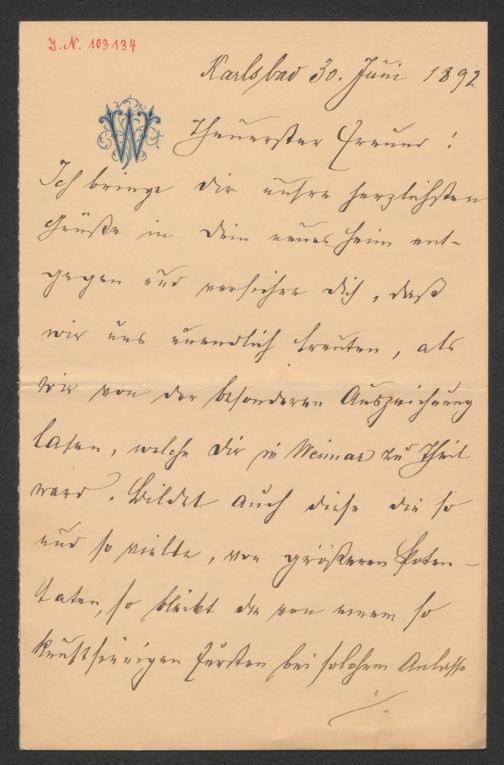 J. N. 103134
Karlsbad 30. Juni 1892
W
Theuerster Freund!
Ich bringe dir unsre herzlichsten
Grüße in dein neues Heim ent-
gegen und versichre dich, daß
wir uns unendlich freuten, als
wir von der besonderen Auszeichnung
lasen, welche dir in Weimar zu Theil
ward. Bildet auch diese die so
und so vielte, von größeren Poten-
taten, so bleibt die von einem so
kunstsinnigen Fürsten bei solchem Anlasse